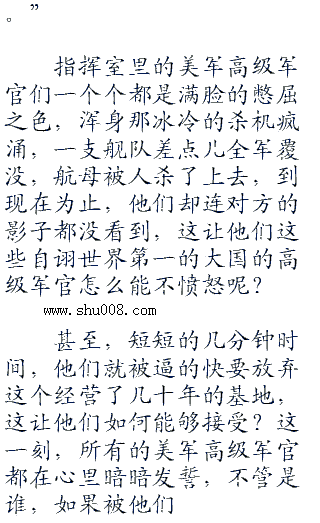 。”
指挥室里的美军高级军
官们一个个都是满脸的憋屈
之色，浑身那冰冷的杀机疯
涌，一支舰队差点儿全军覆
没，航母被人杀了上去，到
现在为止，他们却连对方的
影子都没看到，这让他们这
些自诩世界第一的大国的高
级军官怎么能不愤怒呢？
www.shu008.com
甚至，短短的几分钟时
间，他们就被逼的快要放弃
这个经营了几十年的基地，
这让他们如何能够接受？这
一刻，所有的美军高级军官
都在心里暗暗发誓，不管是
谁，如果被他们